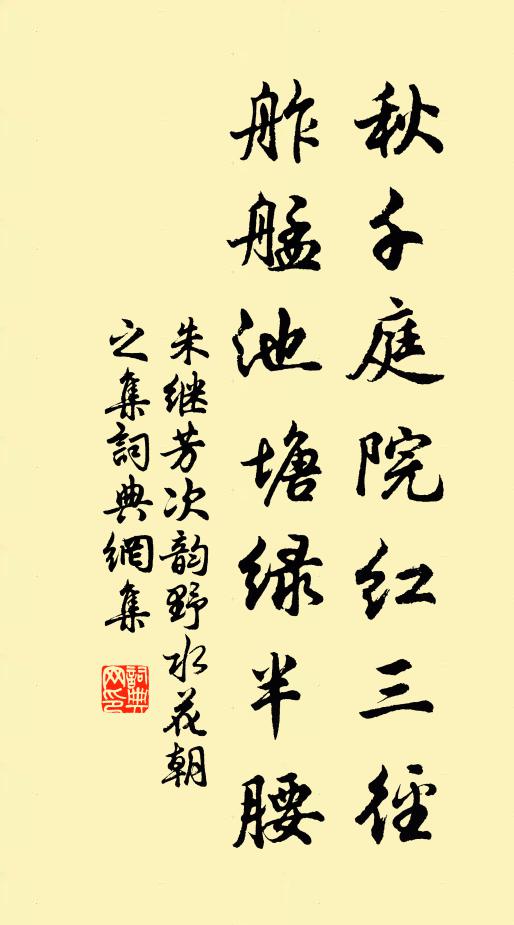 秋千庭院红三径
舴艋池塘绿半腰
朱继芳次韵野水花朝
之集詞典網集
詞典
网印